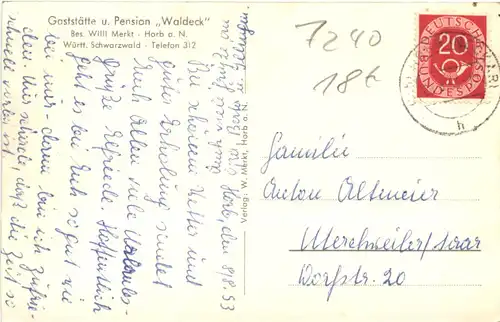 Gaststätte u. Pension „Waldeck"
Bes. Willi Merkt · Horb a. N.
Württ. Schwarzwald - Telefon 312
7240
18t
DEUTSCHE
BUNDESPOST
20
h
Verlag: W. Merkt, Horb a. N.
Horb, den 8/8.53
Bei schönem Wetter und
guter Erholung sendet
Euch Allen viele Urlaubs-
grüße Elfriede. Hoffentlich
geht es bei Euch so gut wie
bei mir - dann bin ich zufrie-
den. Nur schade, daß die Zeit so
schnell vorbei ist.
Familie
Anton Altmeier
Merchweiler/Saar
Dorfstr. 20